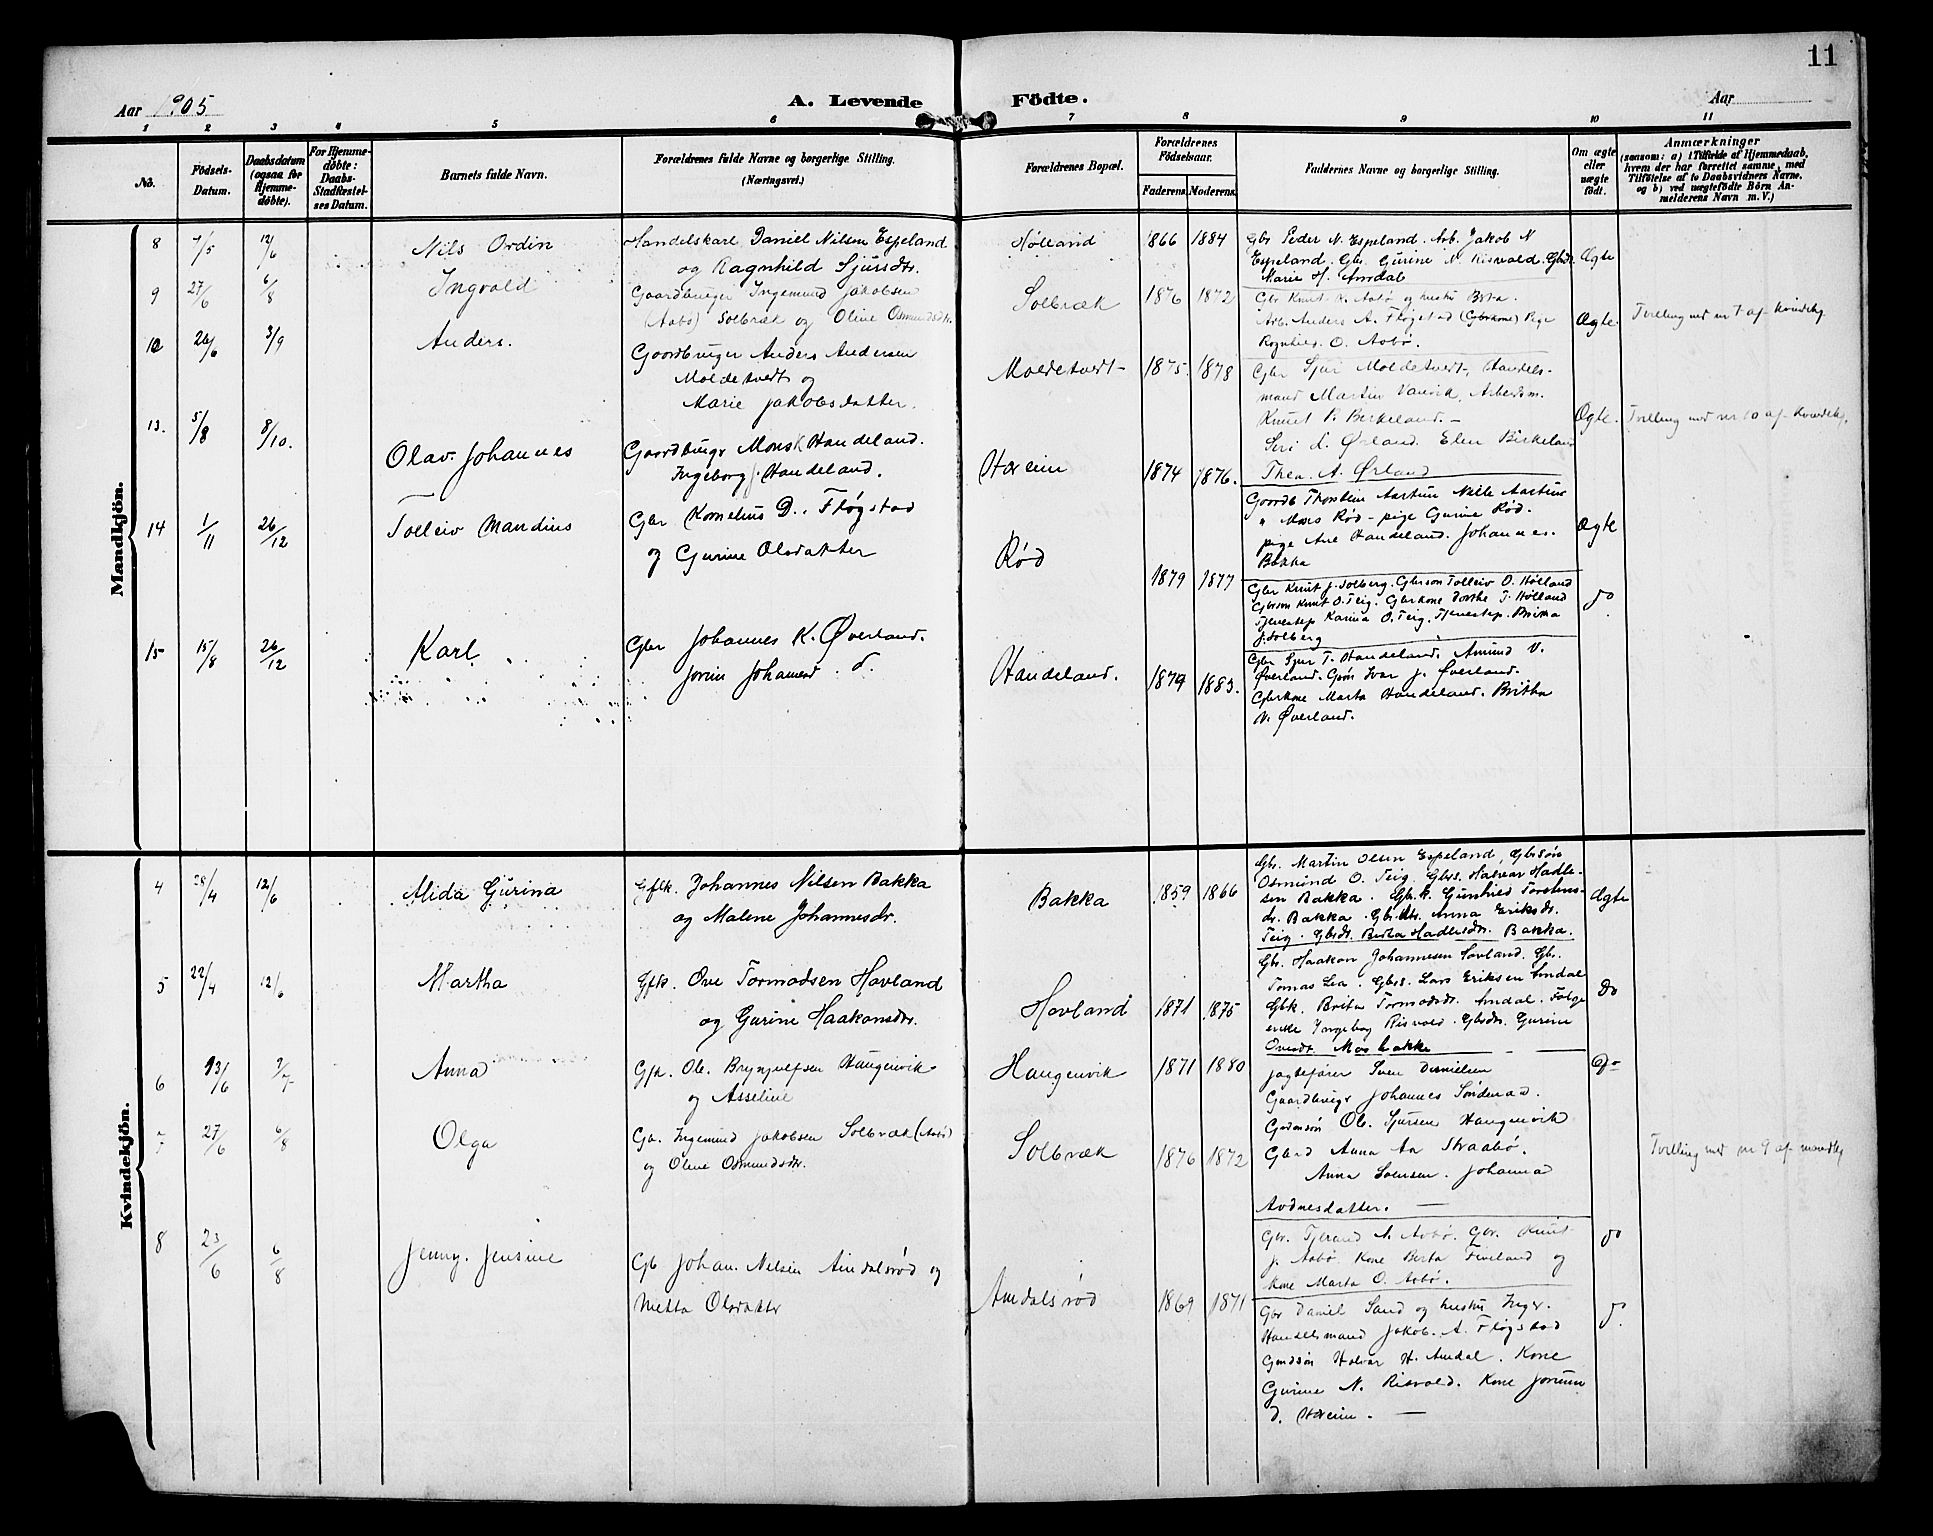 11
Aar 1905
A. Levende Födte.
Aar
1 2 3 4 5 6 7 8 9 10 11
No.
Födsels-
Datum.
Daabsdatum
(ogsaa for
Hjemme-
döbte).
For Hjemme-
döbte:
Daabs-
Stadfæstel-
ses Datum.
Barnets fulde Navn.
Forældrenes fulde Navne og borgerlige Stilling.
(Næringsvei.)
Forældrenes Bopæl.
Forældrenes
Födselsaar.
Faderens. Moderens.
Faddernes Navne og borgerlige Stilling.
Om ægte
eller
uægte
födt.
Anmærkninger
(saasom: a) i Tilfælde af Hjemmedaab,
hvem der har forrettet samme, med
Tilföielse af to Daabsvidners Navne,
og b) ved uægtefödte Börn An-
melderens Navn m. V.)
Mandkjön.
8 7/5 12/6 Nils Ordin
Handelskarl Daniel Nilsen Espeland
og Ragnhild Sjursdtr.
Hølland 1866 1884
Gbr Peder N. Espeland. Arb. Jakob N
Espeland. Gbr. Gurine N. Risvold. Gbdr.
Marie H. Amdal
Ægte
9 27/6 6/8 Ingvald
Gaardbruger Ingemund Jakobsen
(Aabø) Solbræk og Oline Osmundsdtr.
Solbræk 1876 1872
Gbr Knut K. Aabø og hustru Berta.
Arb. Anders A. Fløgstad (Gbrkone) Pige
Ragnhild. O. Aabø.
Ægte. Tvilling med nr 7 af kvindekj
10 26/6 3/9 Anders.
Gaardbruger Anders Andersen
Moldetvedt og
Marie Jakobsdatter.
Moldetvedt 1875. 1878
Gbr Sjur Moldetvedt, Handels-
mand Martin Vanvik, Arbeidsm.
Knut P. Birkeland. –
Siri L. Ørland. Elen Birkeland
Thea. A. Ørland
Ægte. Tvilling med nr 10 af kvindekj.
13. 5/8 8/10. Olav Johannes
Gaardbrugr Mons K Handeland.
Ingeborg J. Handeland.
Hæreim 1874 1876.
Gaardb Thorstein Aartun Nille Aartun
" Mons Rød – pige Gurine Rød.
pige Ane Handeland. Johannes.
Bakka
Ægte
14 1/11 26/12 Tolleiv Mandius
Gbr Kornelius D. Fløgstad
og Gurine Olsdatter
Rød 1879 1877
Gbr Knut J. Solberg. Gbrson Tolleiv O. Hølland
Gbrson Knut O. Teig. Gbrkone Dorthe T. Hølland
Tjenestep Karina O. Teig. Tjenestep. Britha
J. Solberg
do
15 15/8 26/12 Karl
Gbr Johannes K. Øverland.
Joren Johannesd.
Handeland. 1879 1883.
Gbr Sjur T. Handeland. Amund V.
Øverland. Gsøn Ivar J. Øverland.
Gbrkone Marta Handeland. Britha
N. Øverland.
Kvindekjön.
4 28/4 12/6 Alida Gurina
Gflk. Johannes Nilsen Bakka
og Malene Johannesdr.
Bakka 1859 1866
Gbr. Martin Olsen Espeland, Gbrsøn
Osmund O. Teig. Gbrs. Halvar Hadle-
sen Bakka. Gbr.k. Gunhild Torstens-
dr. Bakka. Gbr.dtr. Anna Eriksdr.
Teig. Gbrdr. Berta Hadlesdr. Bakka.
Ægte
5 22/4 12/6 Martha
Gfk. Ove Tormodsen Hovland
og Gurine Haakonsdr.
Hovland 1871 1875
Gbr. Haakon Johannesen Hovland. Gbr.
Tomas Lea. Gbrs. Lars Eriksen Amdal
Gbk. Brita Tormodsdr. Amdal. Følge
enke Ingeborg Risvold. Gbrdr. Gurine
Ovesdr. Mosbakka
Do
6 13/6 2/7 Anna
Gfk. Ole. Brynjulfsen Haugenvik
og Asseline
Haugenvik 1871 1880
Jagtefører Sven Danielsen
Gaardbrugr Johannes Søndenaa.
Gmdsøn Ole. Sjursen Haugenvik
Gbrd Anna Aa Straabø.
Anna Svensen. Johanna
Aadnesdatter. –
Do
7 27/6 6/8 Olga
Gb. Ingemund Jakobsen Solbræk (Aabø)
og Oline Osmundsdtr.
Solbræk 1876 1872
Gbr. Tjerand N. Aabø. Gbr. Knut
J. Aabø Kone Berta Fineland og
Kone Marta O. Aabø.
do Tvilling med nr 9 af mandkj
8 23/6 6/8 Jenny. Jensine
Gb Johan. Nilsen Amdalsrød og
Metta Olsdatter
Amdalsrød 1869 1871
Gbr Daniel Sand og hustru Inger.
Handelsmand Jakob. A. Fløgstad
Gmdsøn Halvar H. Amdal. Kone
Gurine N. Risvold. Kone Jorunn
D. Hæreim. –
do.